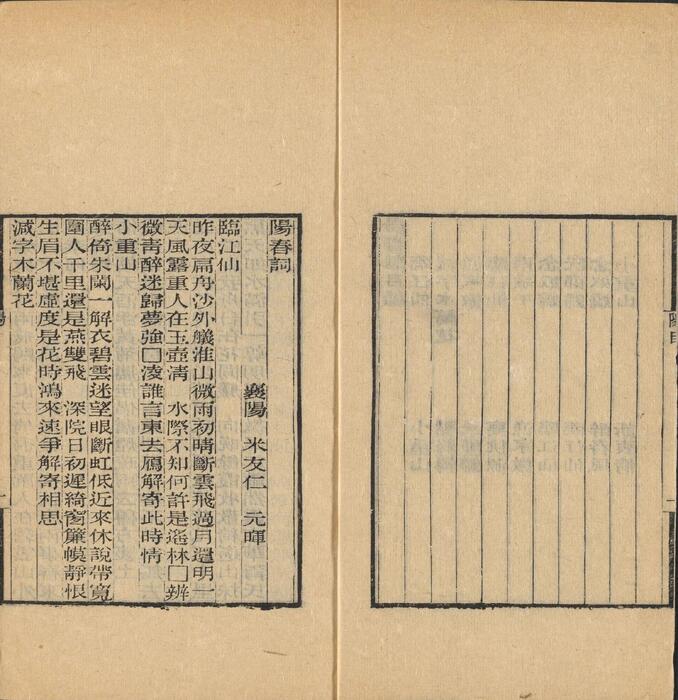 陽春詞
襄陽 米友仁 元暉
臨江仙
昨夜扁舟沙外艤淮山微雨初晴斷雲飛過月還明一
天風露重人在玉壺清 水際不知何許是遙林□辨
微青醉迷歸夢強□淩誰言東去鴈解寄此時情
小重山
醉倚朱闌一解衣碧雲迷望眼斷虹低近來休說帶寬
圍人千里還是燕雙飛 深院日初遲綺窗簾幙靜恨
生眉不堪虛度是花時鴻來速爭解寄相思
減字木蘭花